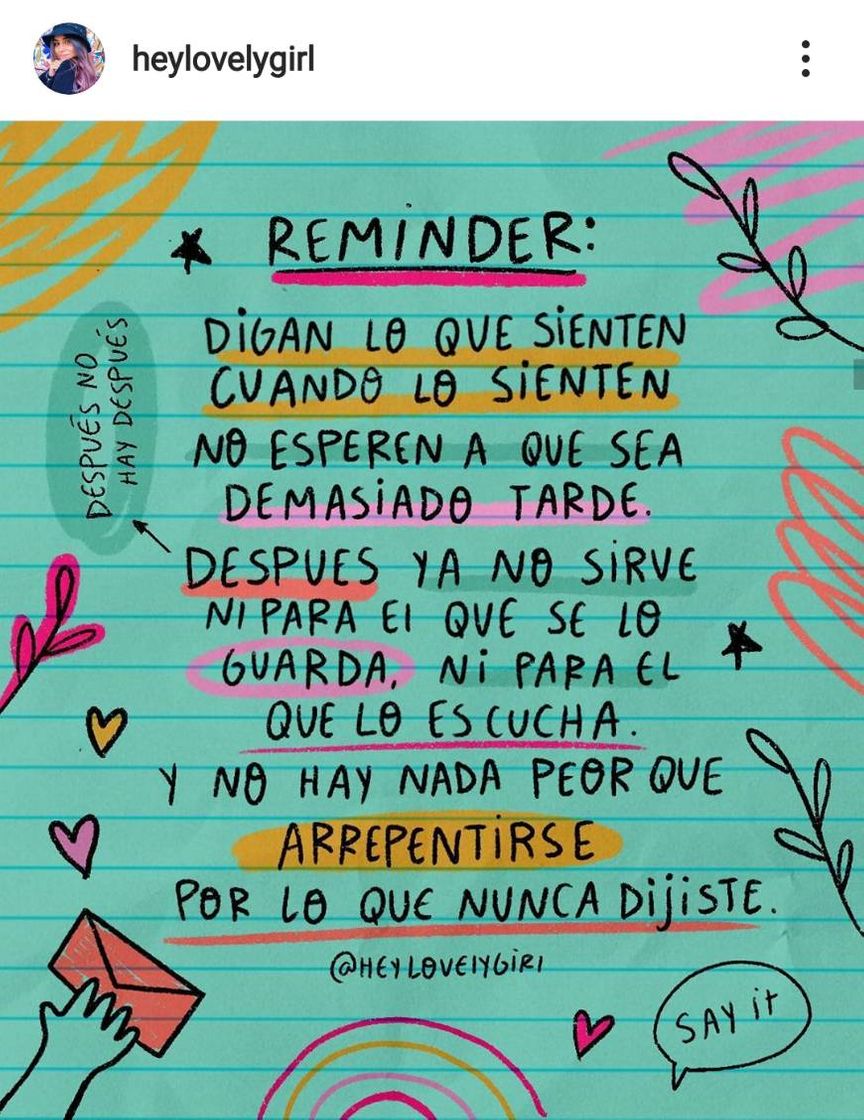 heylovelygirl
REMINDER:
DIGAN LO QUE SIENTEN
CUANDO LO SIENTEN
NO ESPEREN A QUE SEA
DEMASIADO TARDE.
DESPUES YA NO SIRVE
NI PARA El QUE SE LO
GUARDA, NI PARA EL
QUE LO ESCUCHA.
Y NO HAY NADA PEOR QUE
ARREPENTIRSE
POR LO QUE NUNCA DIJISTE.
@HEYLOVElYGIRl
DESPUÉS NO
HAY DESPUÉS
SAY it